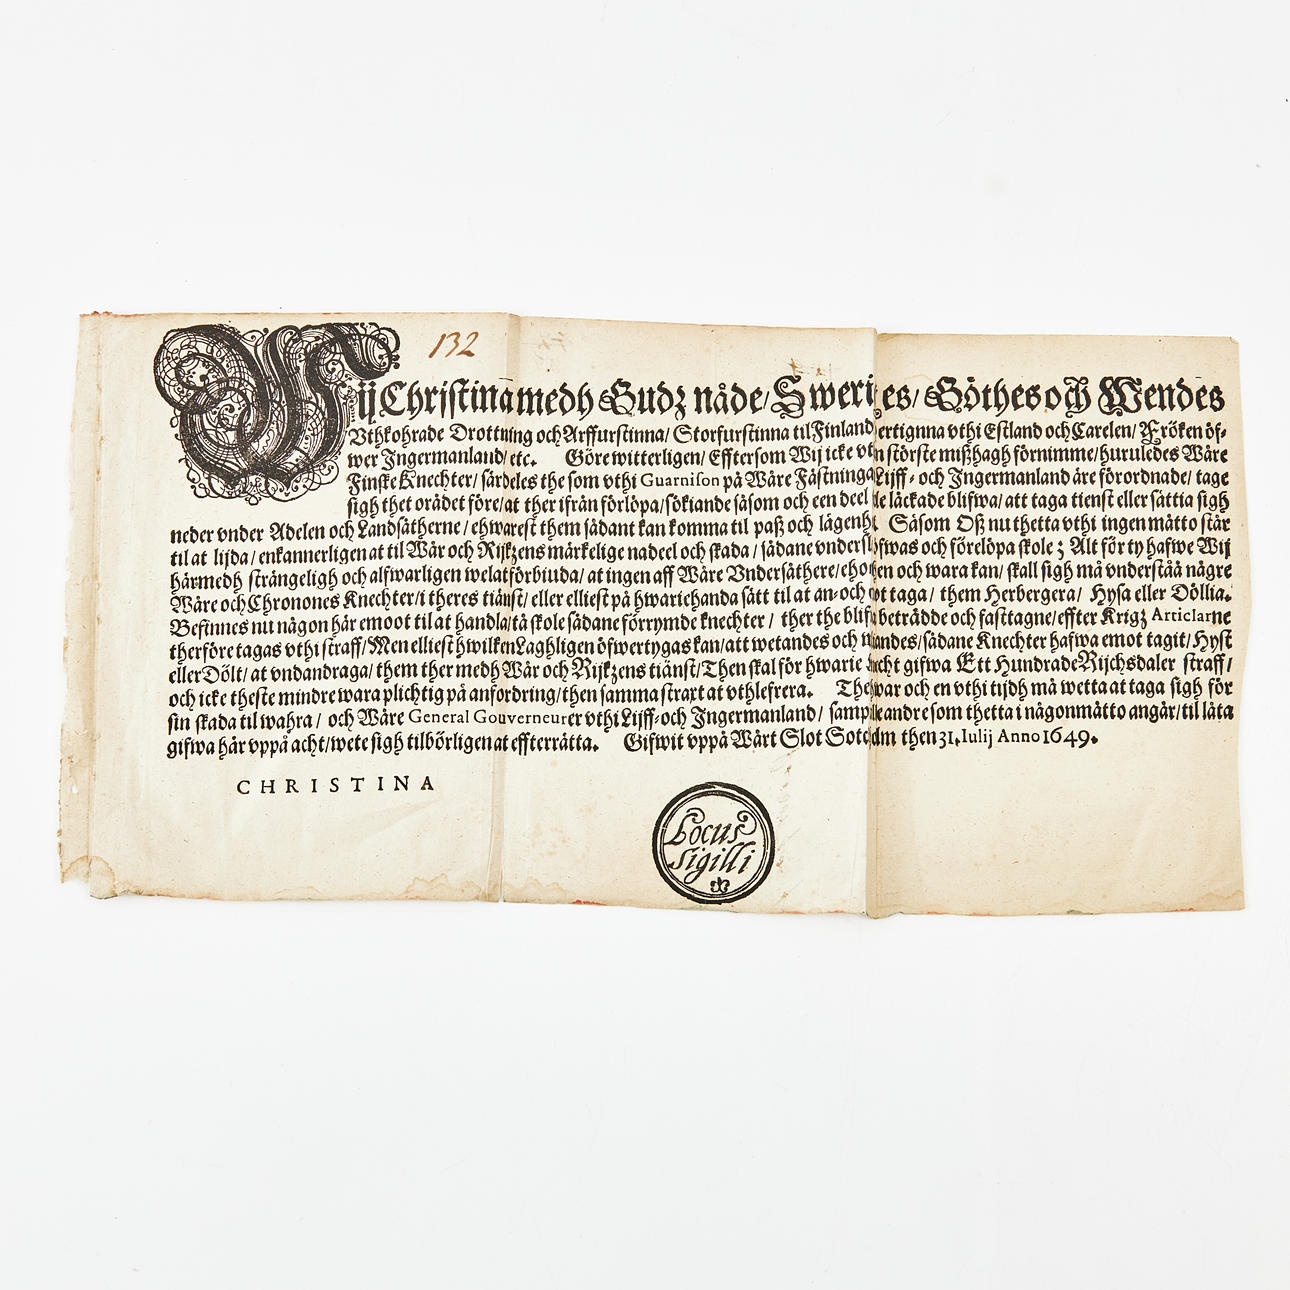 132
Wij Christina medh Gudz nåde/ Sweriges/ Göthes och Wendes
Vthkohrade Drottning och Arffurstinna/ Storfurstinna til Finland ertiginna vthi Estland och Carelen/ Fröken öf-
wer Ingermanland/ etc. Göre witterligen/ Efftersom Wij icke vthan störste mißhagh förnimme/ huruledes Wåre
Finske Knechter/ särdeles the som vthi Guarnison på Wåre Fästninga Lijff- och Ingermanland äre förordnade/ tage
sigh thet orådet före/ at ther ifrån förlöpa/ sökiande såsom och een deel läckade blifwa/ att taga tienst eller sättia sigh
neder vnder Adelen och Landsätherne/ ehwarest them sådant kan komma til paß och lägenh. Såsom Oß nu thetta vthi ingen måtto står
til at lijda/ enkannerligen at til Wår och Rijkzens märkelige nadeel och skada/ sådane vndersl fwas och förelöpa skole; Alt för ty hafwe Wij
härmedh strängeligh och alfwarligen welat förbiuda/ at ingen aff Wåre Vndersåthere/ eho en och wara kan/ skall sigh må vnderstå någre
Wåre och Chronones Knechter/ i theres tiänst/ eller elliest på hwariehanda sätt til at an- och taga/ them Herbergera/ Hysa eller Döllia.
Befinnes nu någon här emoot til at handla/ tå skole sådane förrymde knechter/ ther the blif beträdde och fasttagne/ effter Krigz Articlarne
therföre tagas vthi straff/ Men elliest hwilken Laghligen öfwertygas kan/ att wetandes och andes/ sådane Knechter hafwa emot tagit/ Hyst
eller Dölt/ at vndandraga/ them ther medh Wår och Rijkzens tiänst/ Then skal för hwarie cht gifwa Ett Hundrade Rijchsdaler straff/
och icke theste mindre wara plichtig på anfordring/ then samma straxt at vthlefrera. The war och en vthi tijdh må wetta at taga sigh för
sin skada til wahra/ och Wåre General Gouverneurer vthi Lijff- och Ingermanland/ samp andre som thetta i någon måtto angår/ til låta
gifwa här vppå acht/ wete sigh tilbörligen at effterrätta. Gifwit vppå Wårt Slot Stockholm then 31. Iulij Anno 1649.
CHRISTINA
Locus
Sigilli